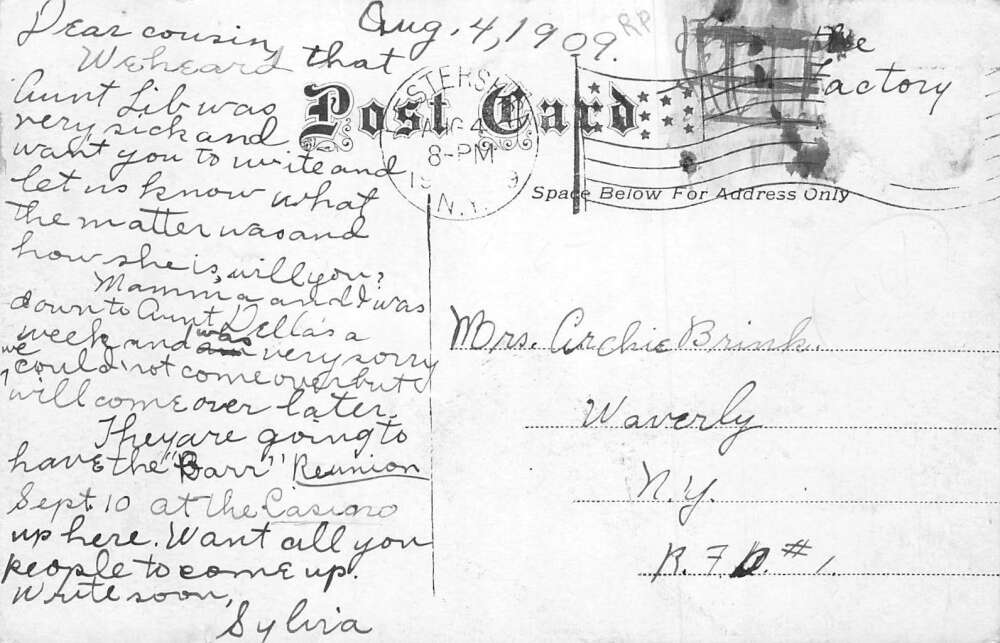 Aug. 4, 1909.
RP
Dear cousin,
We heard that
Aunt Lib was
very sick and
want you to write and
let us know what
the matter was and
how she is, will you?
Mamma and I was
down to Aunt Della's a
week and was very sorry
we could not come over but I
will come over later.
They are going to
have the "Barr" Reunion
Sept. 10 at the Casino
up here. Want all you
people to come up.
Write soon,
Sylvia
the
Factory
Post Card
AUG 4
8-PM
N.Y.
Space Below For Address Only
Mrs. Archie Brink.
Waverly
N.Y.
R. F. D. #1.